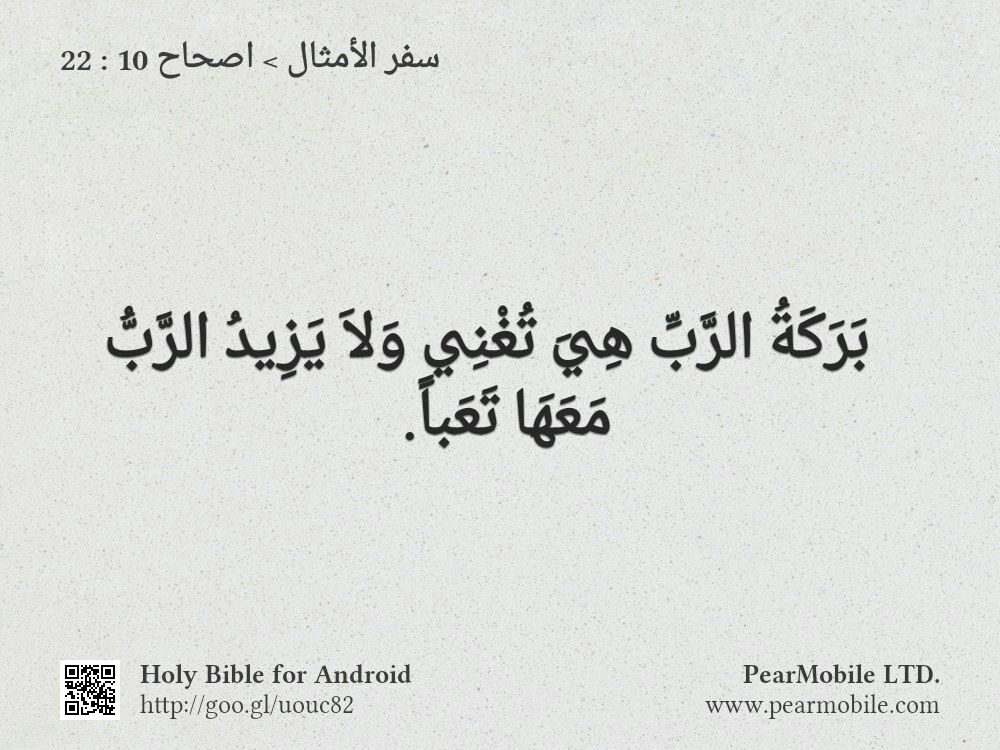 سفر الأمثال > اصحاح 10 : 22
بَرَكَةُ الرَّبِّ هِيَ تُغْنِي وَلاَ يَزِيدُ الرَّبُّ
مَعَهَا تَعَباً.
Holy Bible for Android
http://goo.gl/uouc82
PearMobile LTD.
www.pearmobile.com